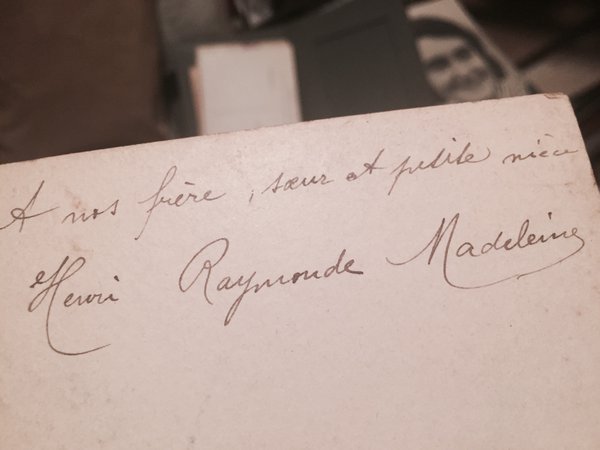 A nos frère, sœur et petite nièce
Henri Raymonde Madeleine